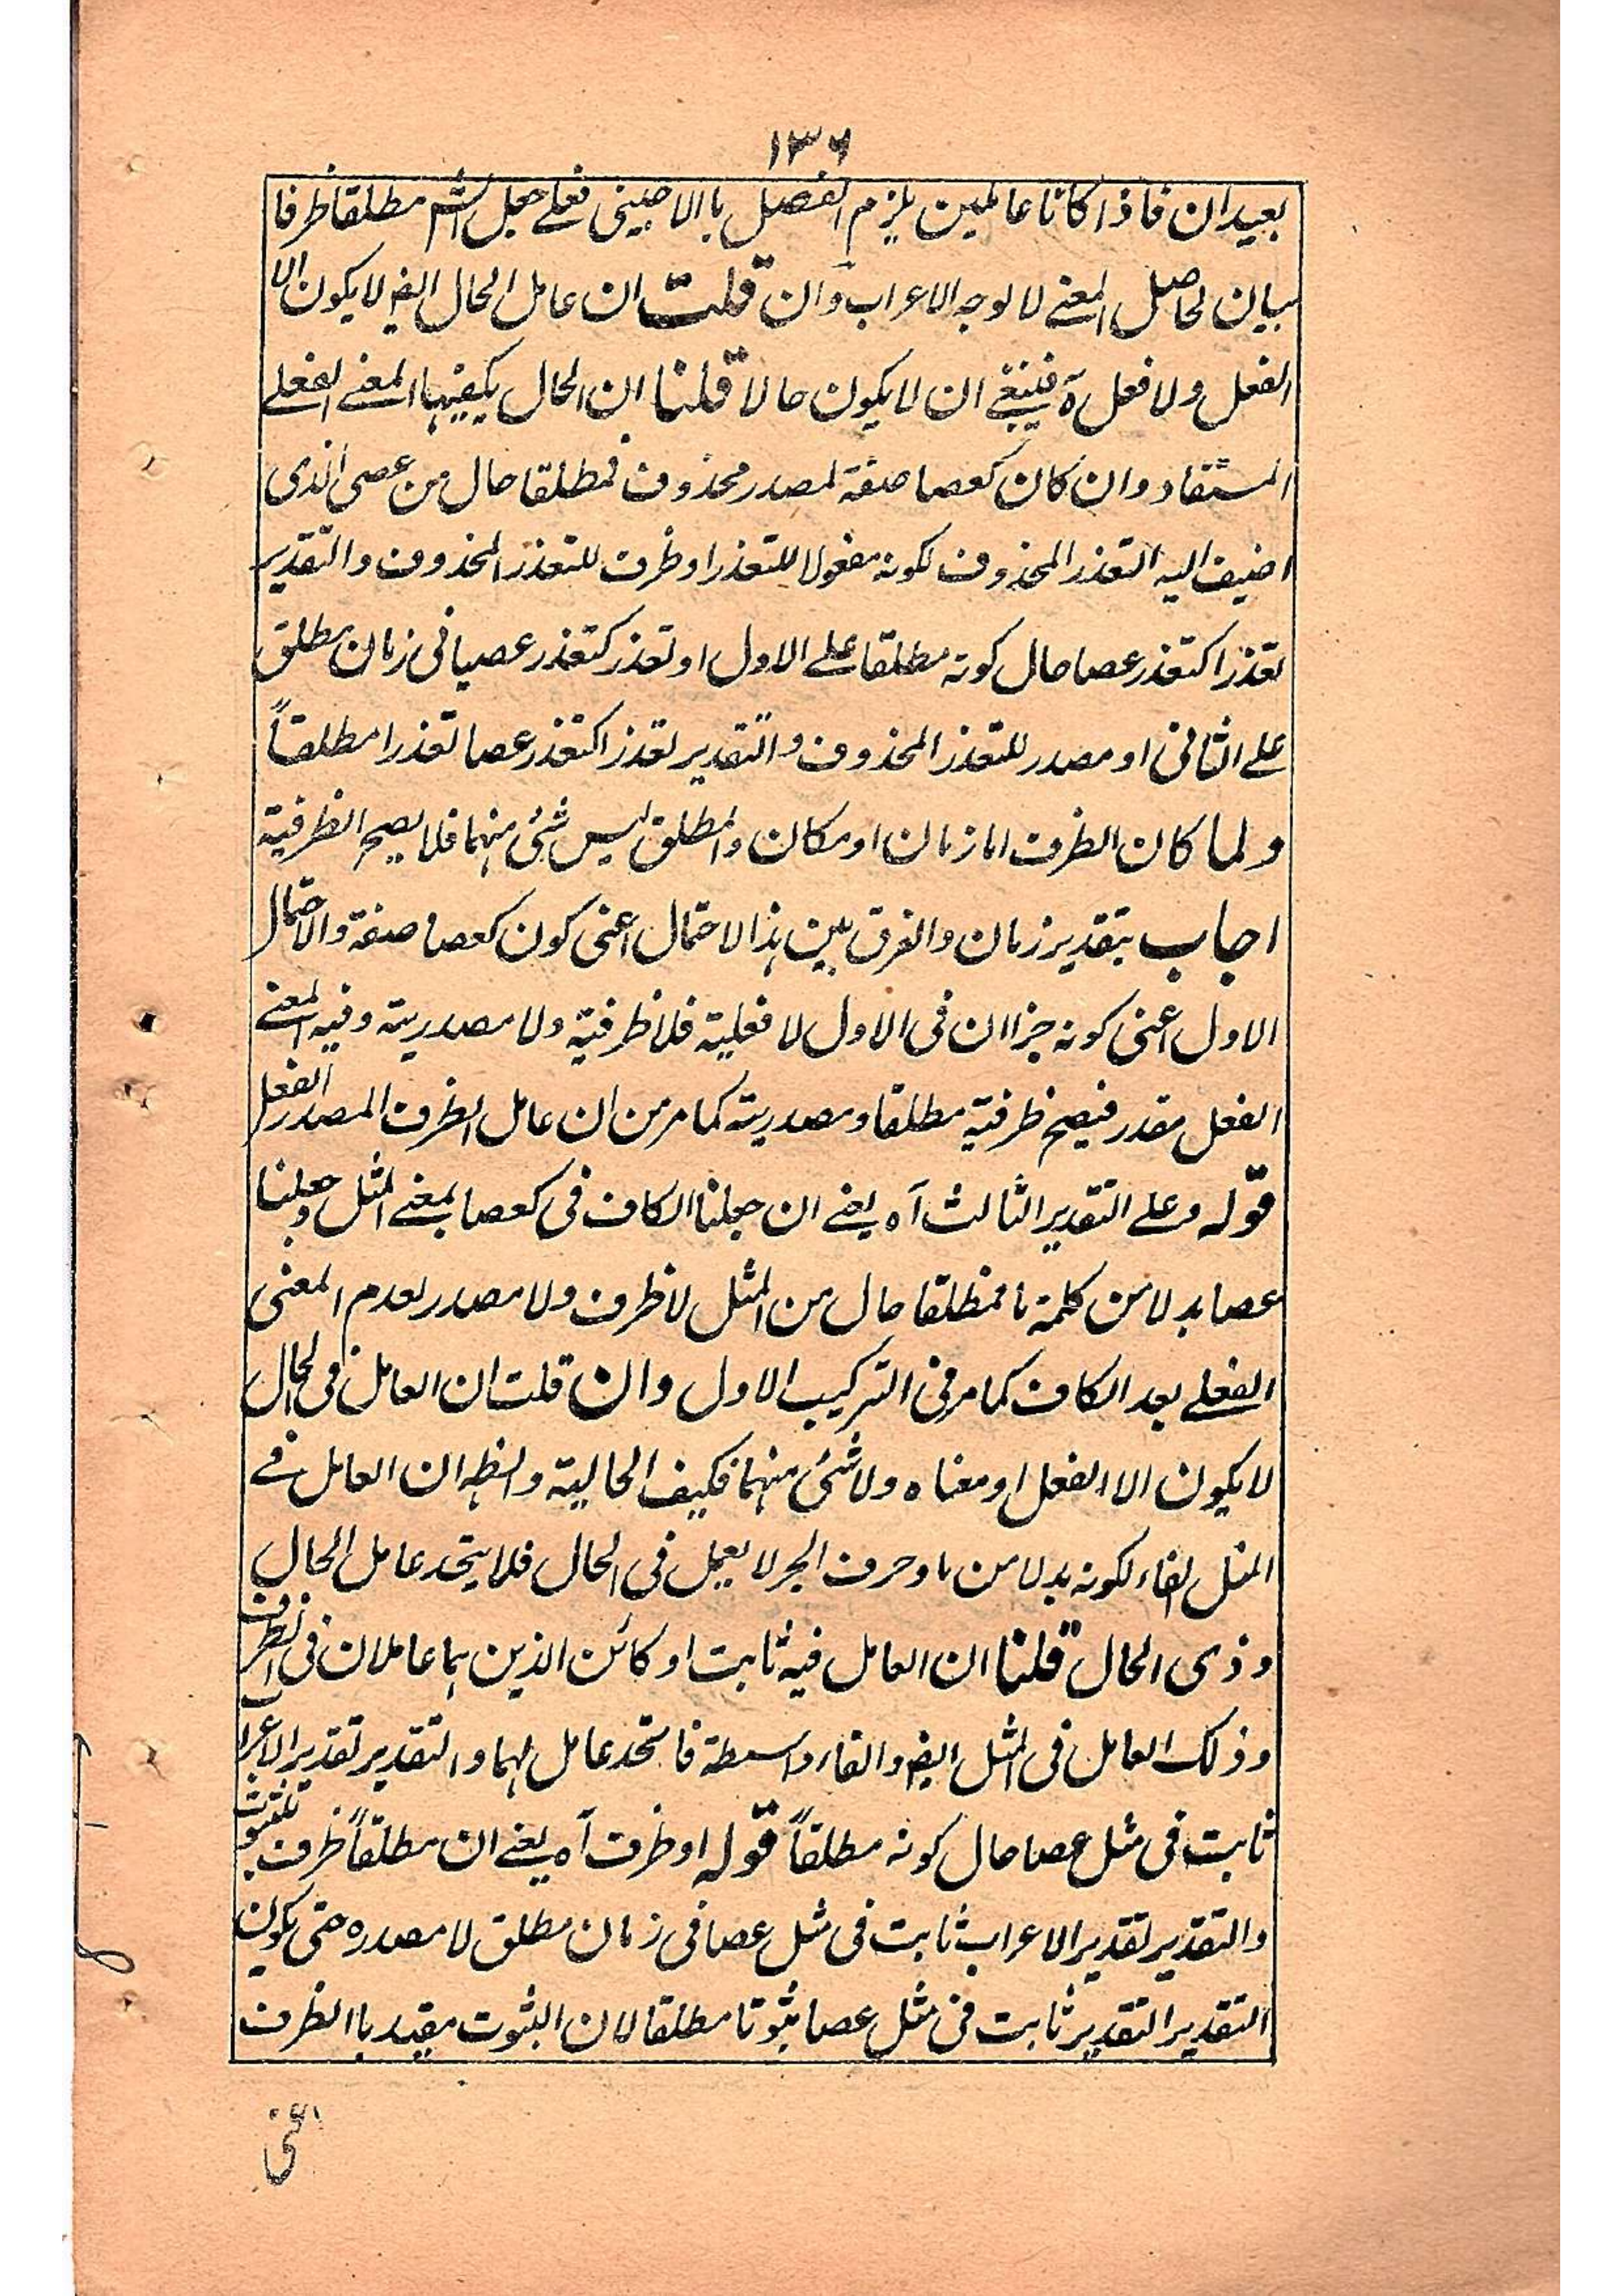 ١٣٦
بعيدان فاذا كانا عاملين يلزم الفصل باالاجنبى فعلے جعل الشم مطلقا ظرفا
بيان لحاصل المعنے لا لوجه الاعراب وان قلت ان عامل الحال ايضا لا يكون الا
الفعل ولا فعل آه فينبغے ان لا يكون حالا قلنا ان الحال يكفيها المعنے الفعلے
المستفاد وان كان كعصا صفة لمصدر محذوف فمطلقا حال من عصى الذى
اضيف اليه التعذر المحذوف لكونه مفعولا للتعذر او ظرف للتعذر المحذوف والتقدير
تعذرا كتعذر عصا حال كونه مطلقا علے الاول او تعذر كتعذر عصيا فى زمان مطلق
علے الثانى او مصدر للتعذر المحذوف والتقدير تعذرا كتعذر عصا تعذرا مطلقاً
ولما كان الظرف اما زمان او مكان والمطلق ليس شئ منهما فلا يصح الظرفية
اجاب بتقدير زمان والفرق بين هذا الاحتمال اعنى كون كعصا صفة والاحتمال
الاول اعنى كونه جزا ان فى الاول لا فعلية فلا ظرفية ولا مصدرية وفيه المعنے
الفعل مقدر فيصح ظرفية مطلقا ومصدرية كما مر من ان عامل الظرف المصدر الفعل
قوله وعلے التقدير الثالث آه يعنے ان جعلنا الكاف فى كعصا بمعنے المثل وجعلنا
عصا بدلا من كلمة ما فمطلقا حال من المثل لا ظرف ولا مصدر لعدم المعنى
الفعلے بعد الكاف كما مر فى التركيب الاول وان قلت ان العامل فى الحال
لا يكون الا الفعل او معناه ولا شئ منهما فكيف الحالية والظه ان العامل فے
المثل الفاء لكونه بدلا من ما وحرف الجر لا يعمل فى الحال فلا يتحد عامل الحال
وذى الحال قلنا ان العامل فيه ثابت او كائن الذين هما عاملان فى الظرف
وذلك العامل فى المثل ايضا والفاء واسطة فاتحد عامل لهما والتقدير تقدير الاعراب
ثابت فى مثل عصا حال كونه مطلقاً قوله او ظرف آه يعنے ان مطلقاً ظرف
والتقدير تقدير الاعراب ثابت فى مثل عصا فى زمان مطلق لا مصدره حتى يكون
التقدير التقدير ثابت فى مثل عصا ثبوتا مطلقا لان الثبوت مقيد باالظرف
اعنى